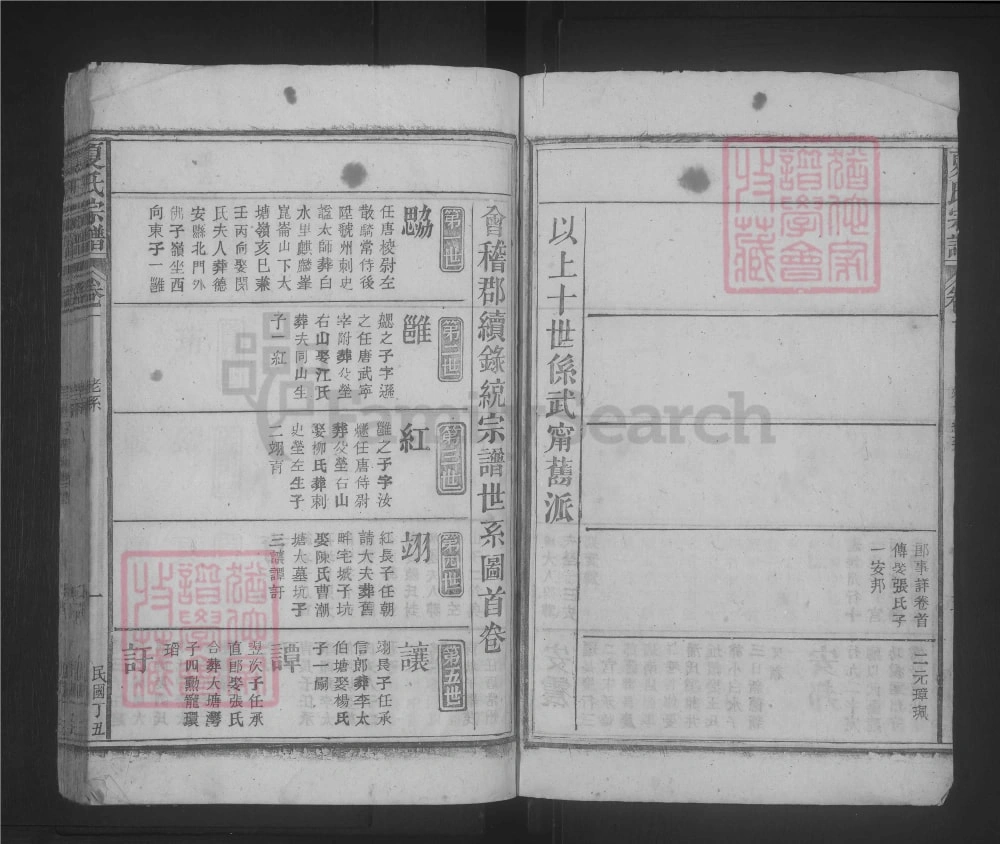 郎事詳卷首
傳娶張氏子
一安邦
二元璋珮
以上十世係武甯舊派
會稽郡續錄統宗譜世系圖首卷
第一世
勰
任唐稜尉左
散騎常侍後
陞虢州刺史
諡太師葬白
水里麒麟峯
崑崙山下大
塘嶺亥巳兼
壬丙向娶閔
氏夫人葬德
安縣北門外
佛子嶺坐西
向東子一雝
第二世
雝
勰之子字遜
之任唐武寧
宰附葬父塋
右山娶江氏
葬夫同山生
子一紅
第三世
紅
雝之子字汝
爔任唐侍尉
葬父塋右山
娶柳氏葬刺
史塋左生子
二翊育
第四世
翊
紅長子任朝
請大夫葬舊
畔宅城子坑
娶陳氏曹潮
塘大墓坑子
三讓譚訏
第五世
讓
翊長子任承
信郎葬李太
伯塘娶楊氏
子一嗣
譚
翌次子任承
直郎娶張氏
合葬大塘灣
子四勲寵環
瑫
訏
夏氏宗譜
卷一
老系
一
民國丁丑
譜學會
收藏
FamilySearch